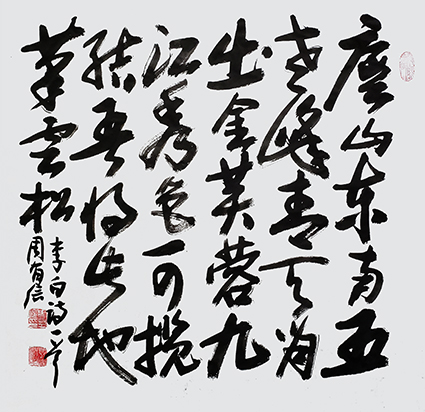 廬山东南五
老峰青天削
出金芙蓉九
江秀色可揽
結吾将此地
巢雲松
李白诗一首
周